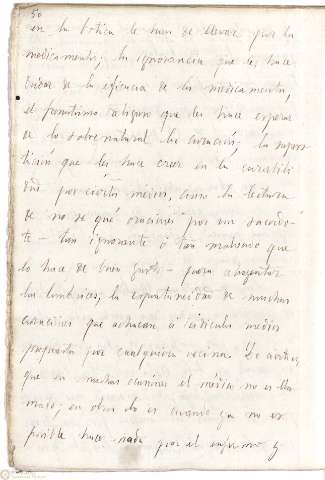 50
en la botica le han de llevar por los
medicamentos; la ignorancia que les hace
dudar de la eficacia de los medicamentos,
el fanatismo religioso que les hace esperar
de lo sobrenatural la curación; la supers-
tición que les hace creer en la
por ciertos medios, como la lectura
de no se qué oraciones por un sacerdo-
te - tan ignorante ó tan malvado que
lo hace de buen grado - para ahuyentar
las lombrices; la espontaneidad de muchas
curaciones que achacan á ridiculos medios
propuestos por cualquiera vecina. De aqui es
que en muchas ocasiones el médico no es lla-
mado; en otras lo es cuando ya no es
posible hacer nada por el enfermo y